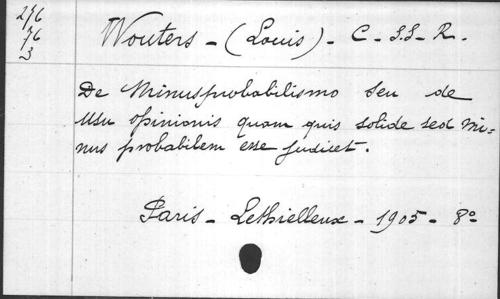 276
76
3
Wouters - (Louis) - C - S.S - R.
De Minusprobabilismo seu de
Usu opinionis quam quis solide sed Mi-
nus probabilem esse judicet.
Paris - Lethielleux - 1905 - 8º